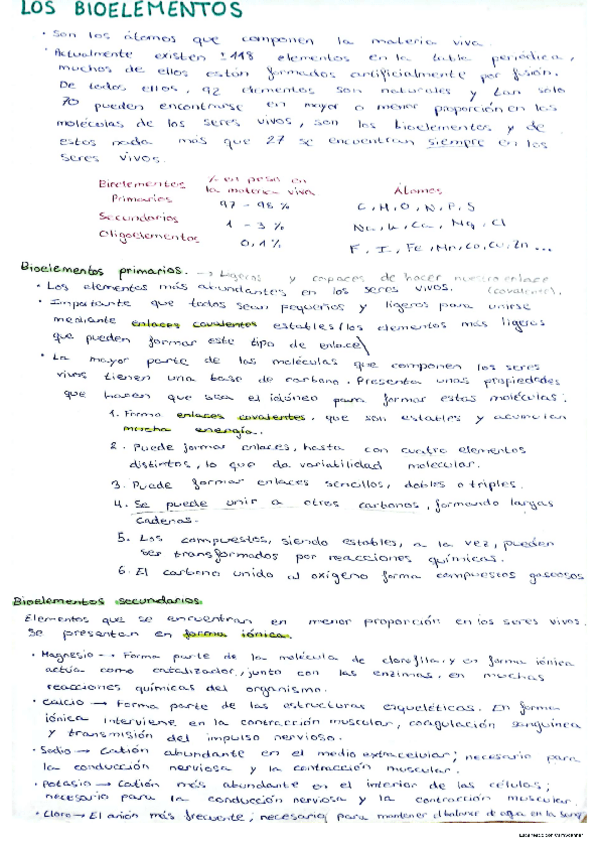 LOS BIOELEMENTOS
· Son los átomos que componen la materia viva.
· Actualmente existen 118 elementos en la tabla periódica,
muchos de ellos están formados artificialmente por fusión.
De todos ellos, 92 elementos son naturales y tan solo
70 pueden encontrarse en mayor o menor proporción en las
moléculas de los seres vivos, son los bioelementos y de
estos nada más que 27 se encuentran siempre en los
seres vivos.
Bioelementos % en peso en la materia viva Átomos
Primarios 97 - 98 % C, H, O, N, P, S
Secundarios 1 - 3 % Na, K, Ca, Mg, Cl
Oligoelementos 0,1 % F, I, Fe, Mn, Co, Cu, Zn ...
Bioelementos primarios. → Ligeros y capaces de hacer enlace
(covalente).
· Los elementos más abundantes en los seres vivos.
· Importante que todos sean pequeños y ligeros para unirse
mediante enlaces covalentes estables (los elementos más ligeros
que pueden formar este tipo de enlace)
· La mayor parte de las moléculas que componen los seres
vivos tienen una base de carbono. Presenta unas propiedades
que hacen que sea el idóneo para formar estas moléculas:
1. Forma enlaces covalentes, que son estables y acumulan
mucha energía.
2. Puede formar enlaces, hasta con cuatro elementos
distintos, lo que da variabilidad molecular.
3. Puede formar enlaces sencillos, dobles o triples.
4. Se puede unir a otros carbonos, formando largas
cadenas.
5. Los compuestos, siendo estables, a la vez, pueden
ser transformados por reacciones químicas.
6. El carbono unido al oxígeno forma compuestos gaseosos
Bioelementos secundarios
Elementos que se encuentran en menor proporción en los seres vivos.
Se presentan en forma iónica.
· Magnesio → Forma parte de la molécula de clorofila, y en forma iónica
actúa como catalizador, junto con las enzimas, en muchas
reacciones químicas del organismo.
· Calcio → Forma parte de las estructuras esqueléticas. En forma
iónica interviene en la contracción muscular, coagulación sanguínea
y transmisión del impulso nervioso.
· Sodio → Catión abundante en el medio extracelular; necesario para
la conducción nerviosa y la contracción muscular.
· Potasio → Catión más abundante en el interior de las células;
necesario para la conducción nerviosa y la contracción muscular.
· Cloro → El anión más frecuente; necesario para mantener el balance de agua en la